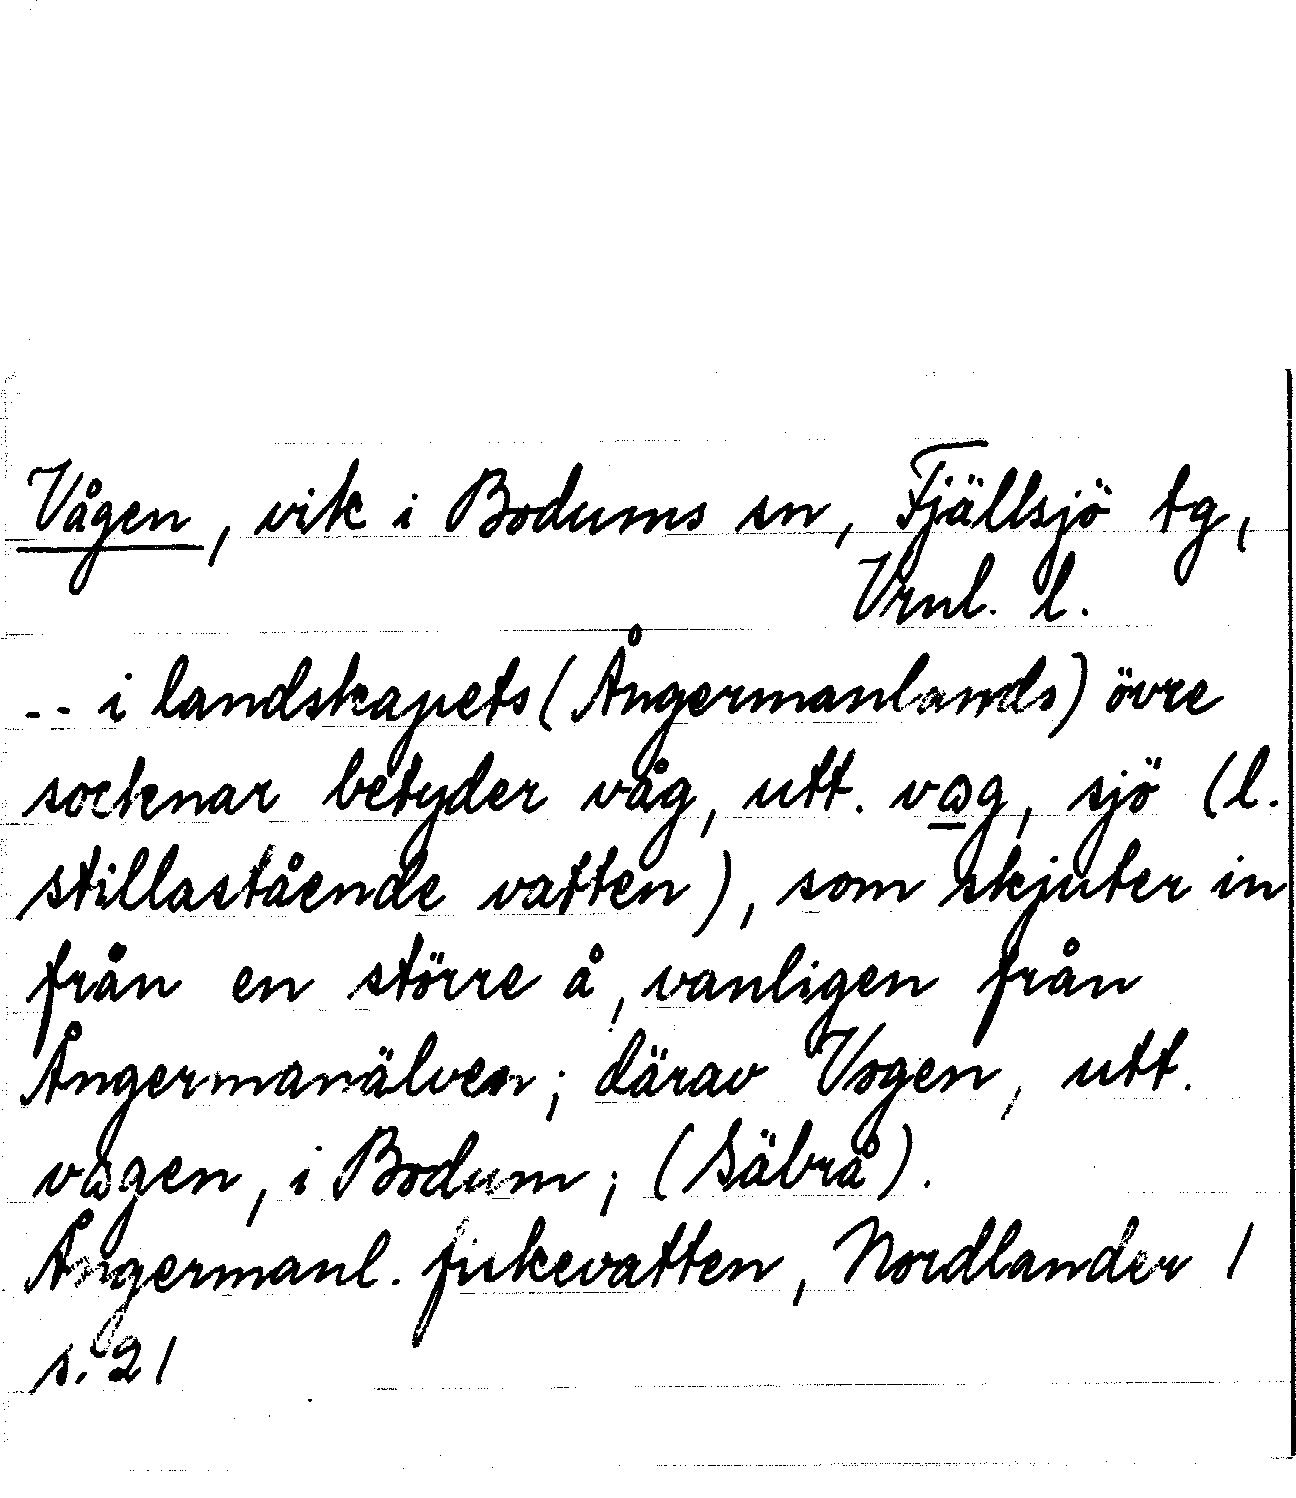 Vågen, vik i Bodums sn, Fjällsjö tg,
Vrnl. l.
-- i landskapets (Ångermanlands) övre
socknar betyder våg, utt. vωg, sjö (l.
stillastående vatten), som skjuter in
från en större å, vanligen från
Ångermanälven; därav Vogen, utt.
vωgen, i Bodum; (Säbrå).
Ångermanl. fiskevatten, Nordlander 1
s. 21